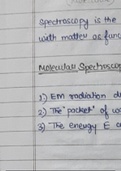 Spectroscopy is the
with matter as func
Molecular Spectrosco
1) EM radiation d
2) The "packet" of w
3) The energy E a